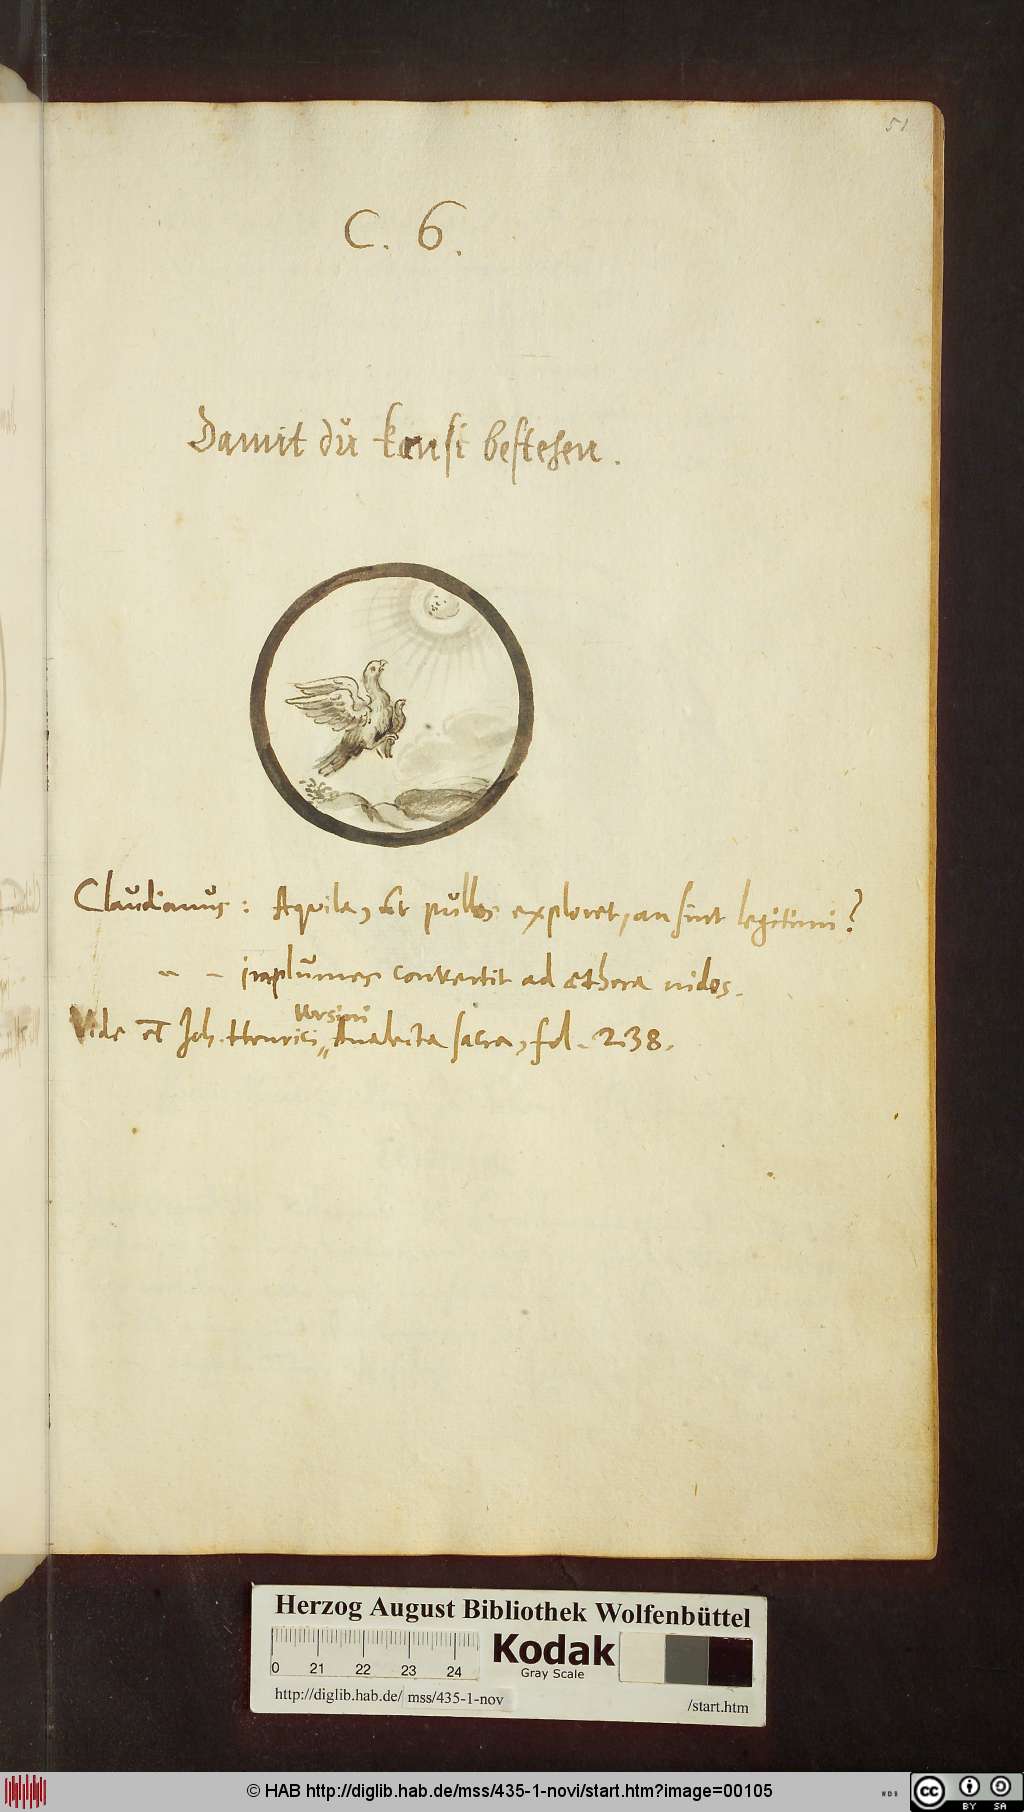 51
C. 6.
Damit du kansi bestehen.
Claudianus: Aquila, ut pullos exploret, an sint legitimi?
implumes convertit ad æthera nidos.
Ursini
Vide et Joh. Henrici „ Analecta sacra, fol. 238.
Herzog August Bibliothek Wolfenbüttel
0 21 22 23 24
Kodak
Gray Scale
http://diglib.hab.de/ mss/435-1-nov /start.htm
© HAB http://diglib.hab.de/mss/435-1-novi/start.htm?image=00105
WDB
cc BY SA